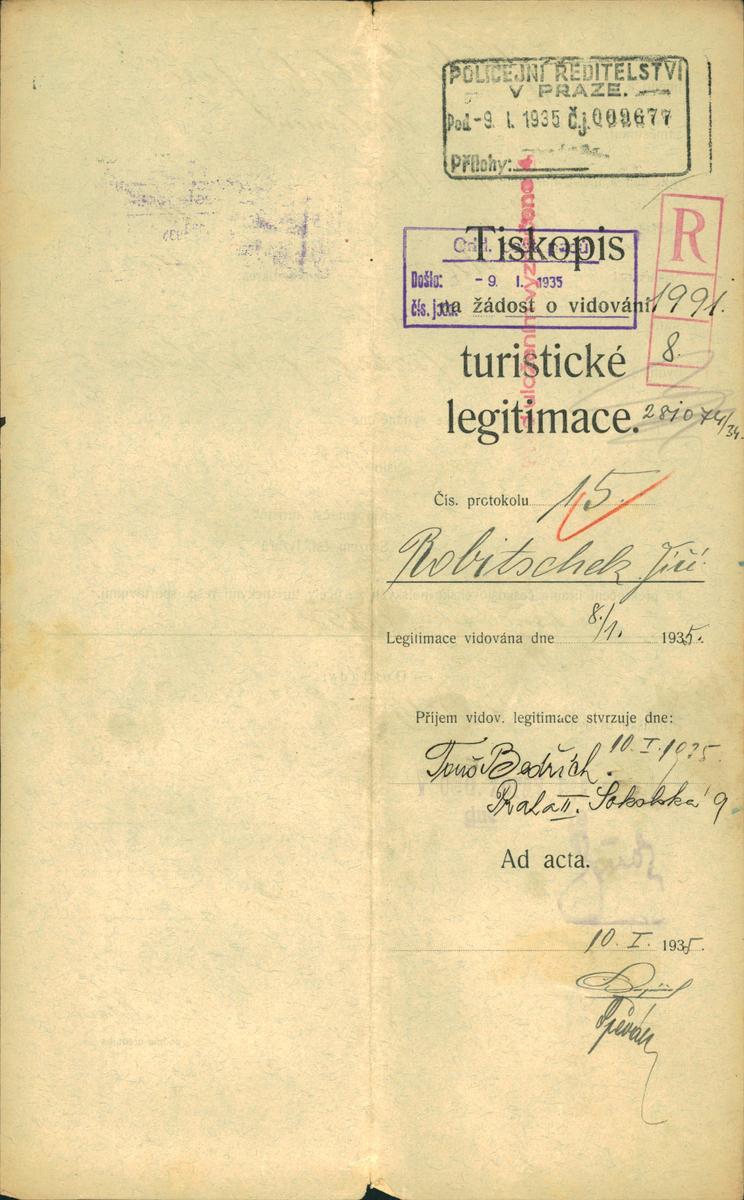 POLICEJNÍ ŘEDITELSTVÍ
V PRAZE.
Pod -9. I. 1935 Č.j. 009677
Přílohy:
R
Tiskopis
Došlo: - 9. I. 1935
čís. jedn.
na žádost o vidování
1991.
8.
turistické
legitimace.
281074/34.
Čís. protokolu 15.
Robitschek Jiří
Legitimace vidována dne 8./1. 1935.
Příjem vidov. legitimace stvrzuje dne:
10. I. 1935
Bedřich.
Praha II. Sokolská 9
Ad acta.
10. I. 1935.